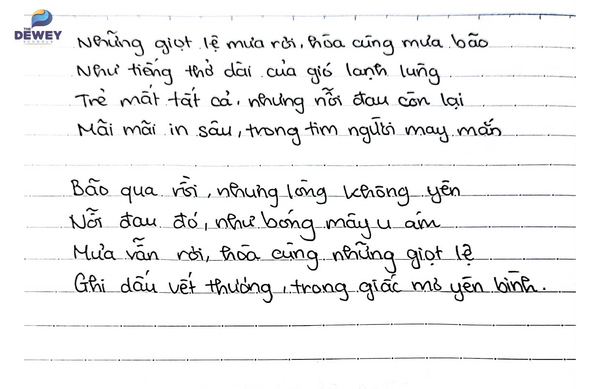 DEWEY
Những giọt lệ mưa rơi, hòa cùng mưa bão
Như tiếng thở dài của gió lạnh lùng
Trẻ mất tất cả, nhưng nỗi đau còn lại
Mãi mãi in sâu, trong tim người may mắn
Bão qua rồi, nhưng lòng không yên
Nỗi đau đó, như bóng mây u ám
Mưa vẫn rơi, hòa cùng những giọt lệ
Ghi dấu vết thương, trong giấc mơ yên bình.